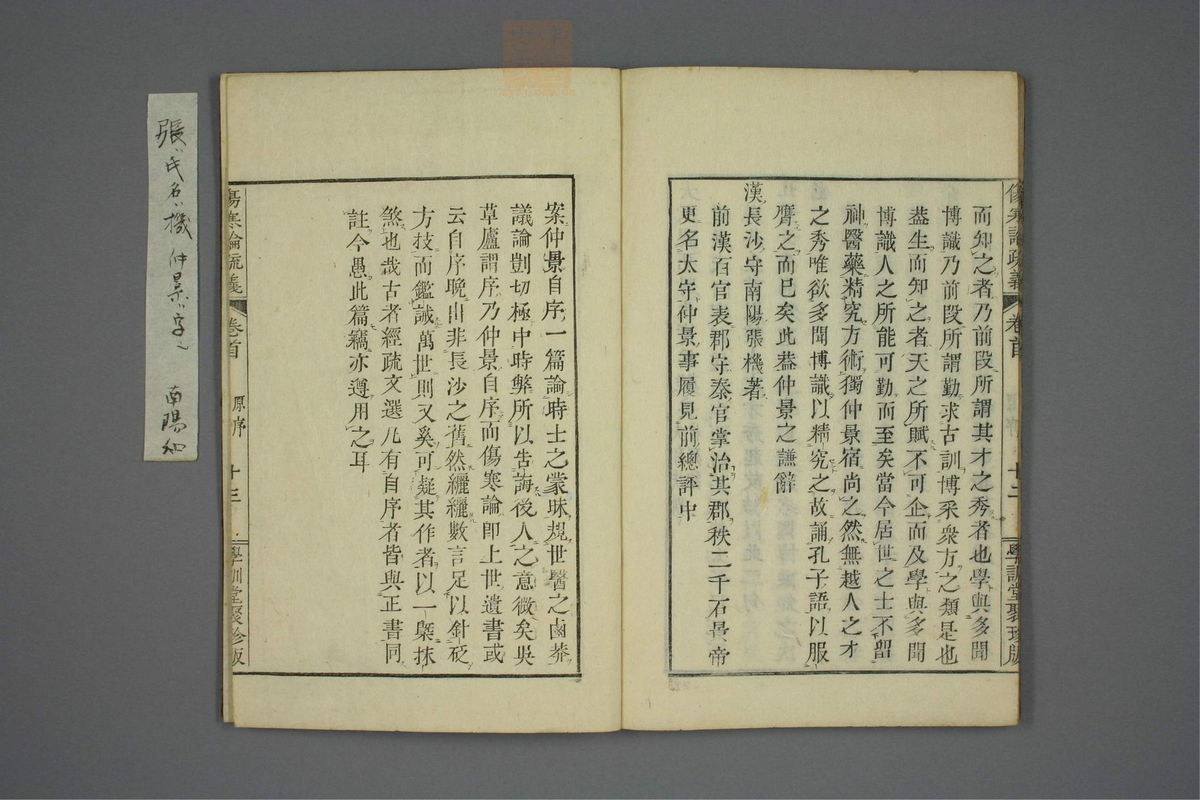 傷寒論疏義
卷首
十二
學訓堂聚珍版
而知之者乃前段所謂其才之秀者也學與多聞
博識乃前段所謂勤求古訓博采衆方之類是也
葢生而知之者天之所賦不可企而及學與多聞
博識人之所能可勤而至矣當今居世之士不留
神醫藥精究方術獨仲景宿尚之然無越人之才
之秀唯欲多聞博識以精究之故誦孔子語以服
膺之而已矣此葢仲景之謙辭
漢長沙守南陽張機著
前漢百官表郡守秦官掌治其郡秩二千石景帝
更名太守仲景事履見前總評中
案仲景自序一篇論時士之蒙昧規世醫之鹵莽
議論剴切極中時弊所以告誨後人之意微矣吳
草廬謂序乃仲景自序而傷寒論即上世遺書或
云自序晚出非長沙之舊然纚纚數言足以針砭
方技而鑑誡萬世則又奚可疑其作者以一槩抹
煞也哉古者經疏文選凡有自序者皆與正書同
註今愚此篇竊亦遵用之耳
傷寒論疏義
卷首
原序
十三
學訓堂聚珍版
張氏名機仲景字
南陽